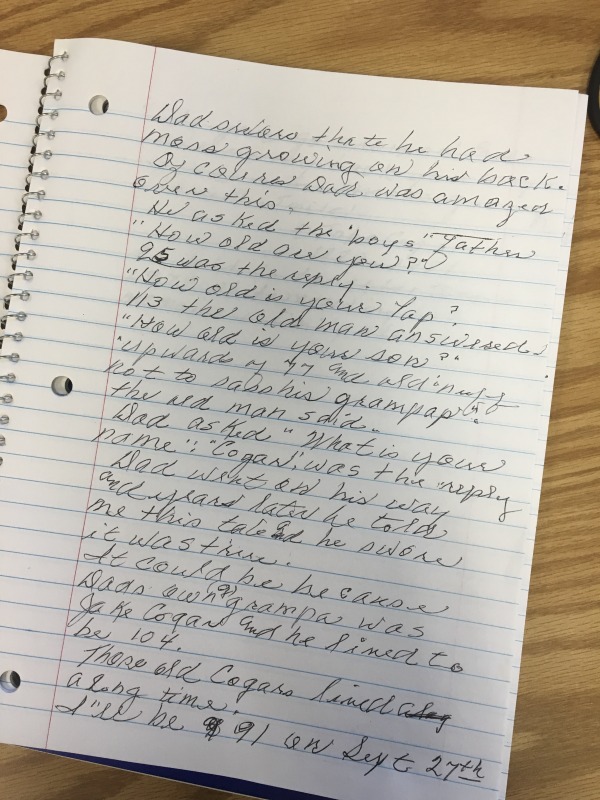 Dad swore thate he had
moss growing on his back.
Of course Dad was amazed
over this.
He asked the "boys" Father
"How old are you?"
95 was the reply.
"How old is your Pap?
113 the old man answered.
"How old is your son?"
"Upwards of 77 and old nuff
not to sass his grampap"
the old man said.
Dad asked "What is your
name": "Cogan", was the reply
Dad went on his way
and years later he told
me this tale and he swore
it was true.
It could be because
Dads own grampa was
Jake Cogan and he lived to
be 104.
Those old Cogans lived
a long time.
I'll be 91 on Sept. 27th